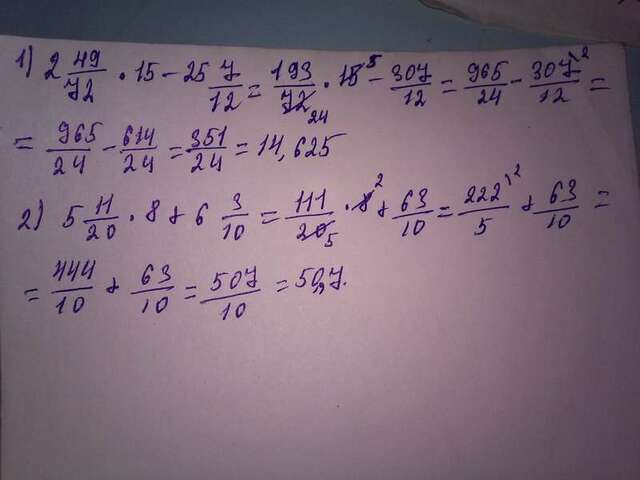 1) 2 49/72 · 15 - 25 7/12 = 193/72 24 · 15 5 - 307/12 = 965/24 - 307/12 2 =
= 965/24 - 614/24 = 351/24 = 14,625
2) 5 11/20 · 8 + 6 3/10 = 111/20 5 · 8 2 + 63/10 = 222/5 2 + 63/10 =
= 444/10 + 63/10 = 507/10 = 50,7.